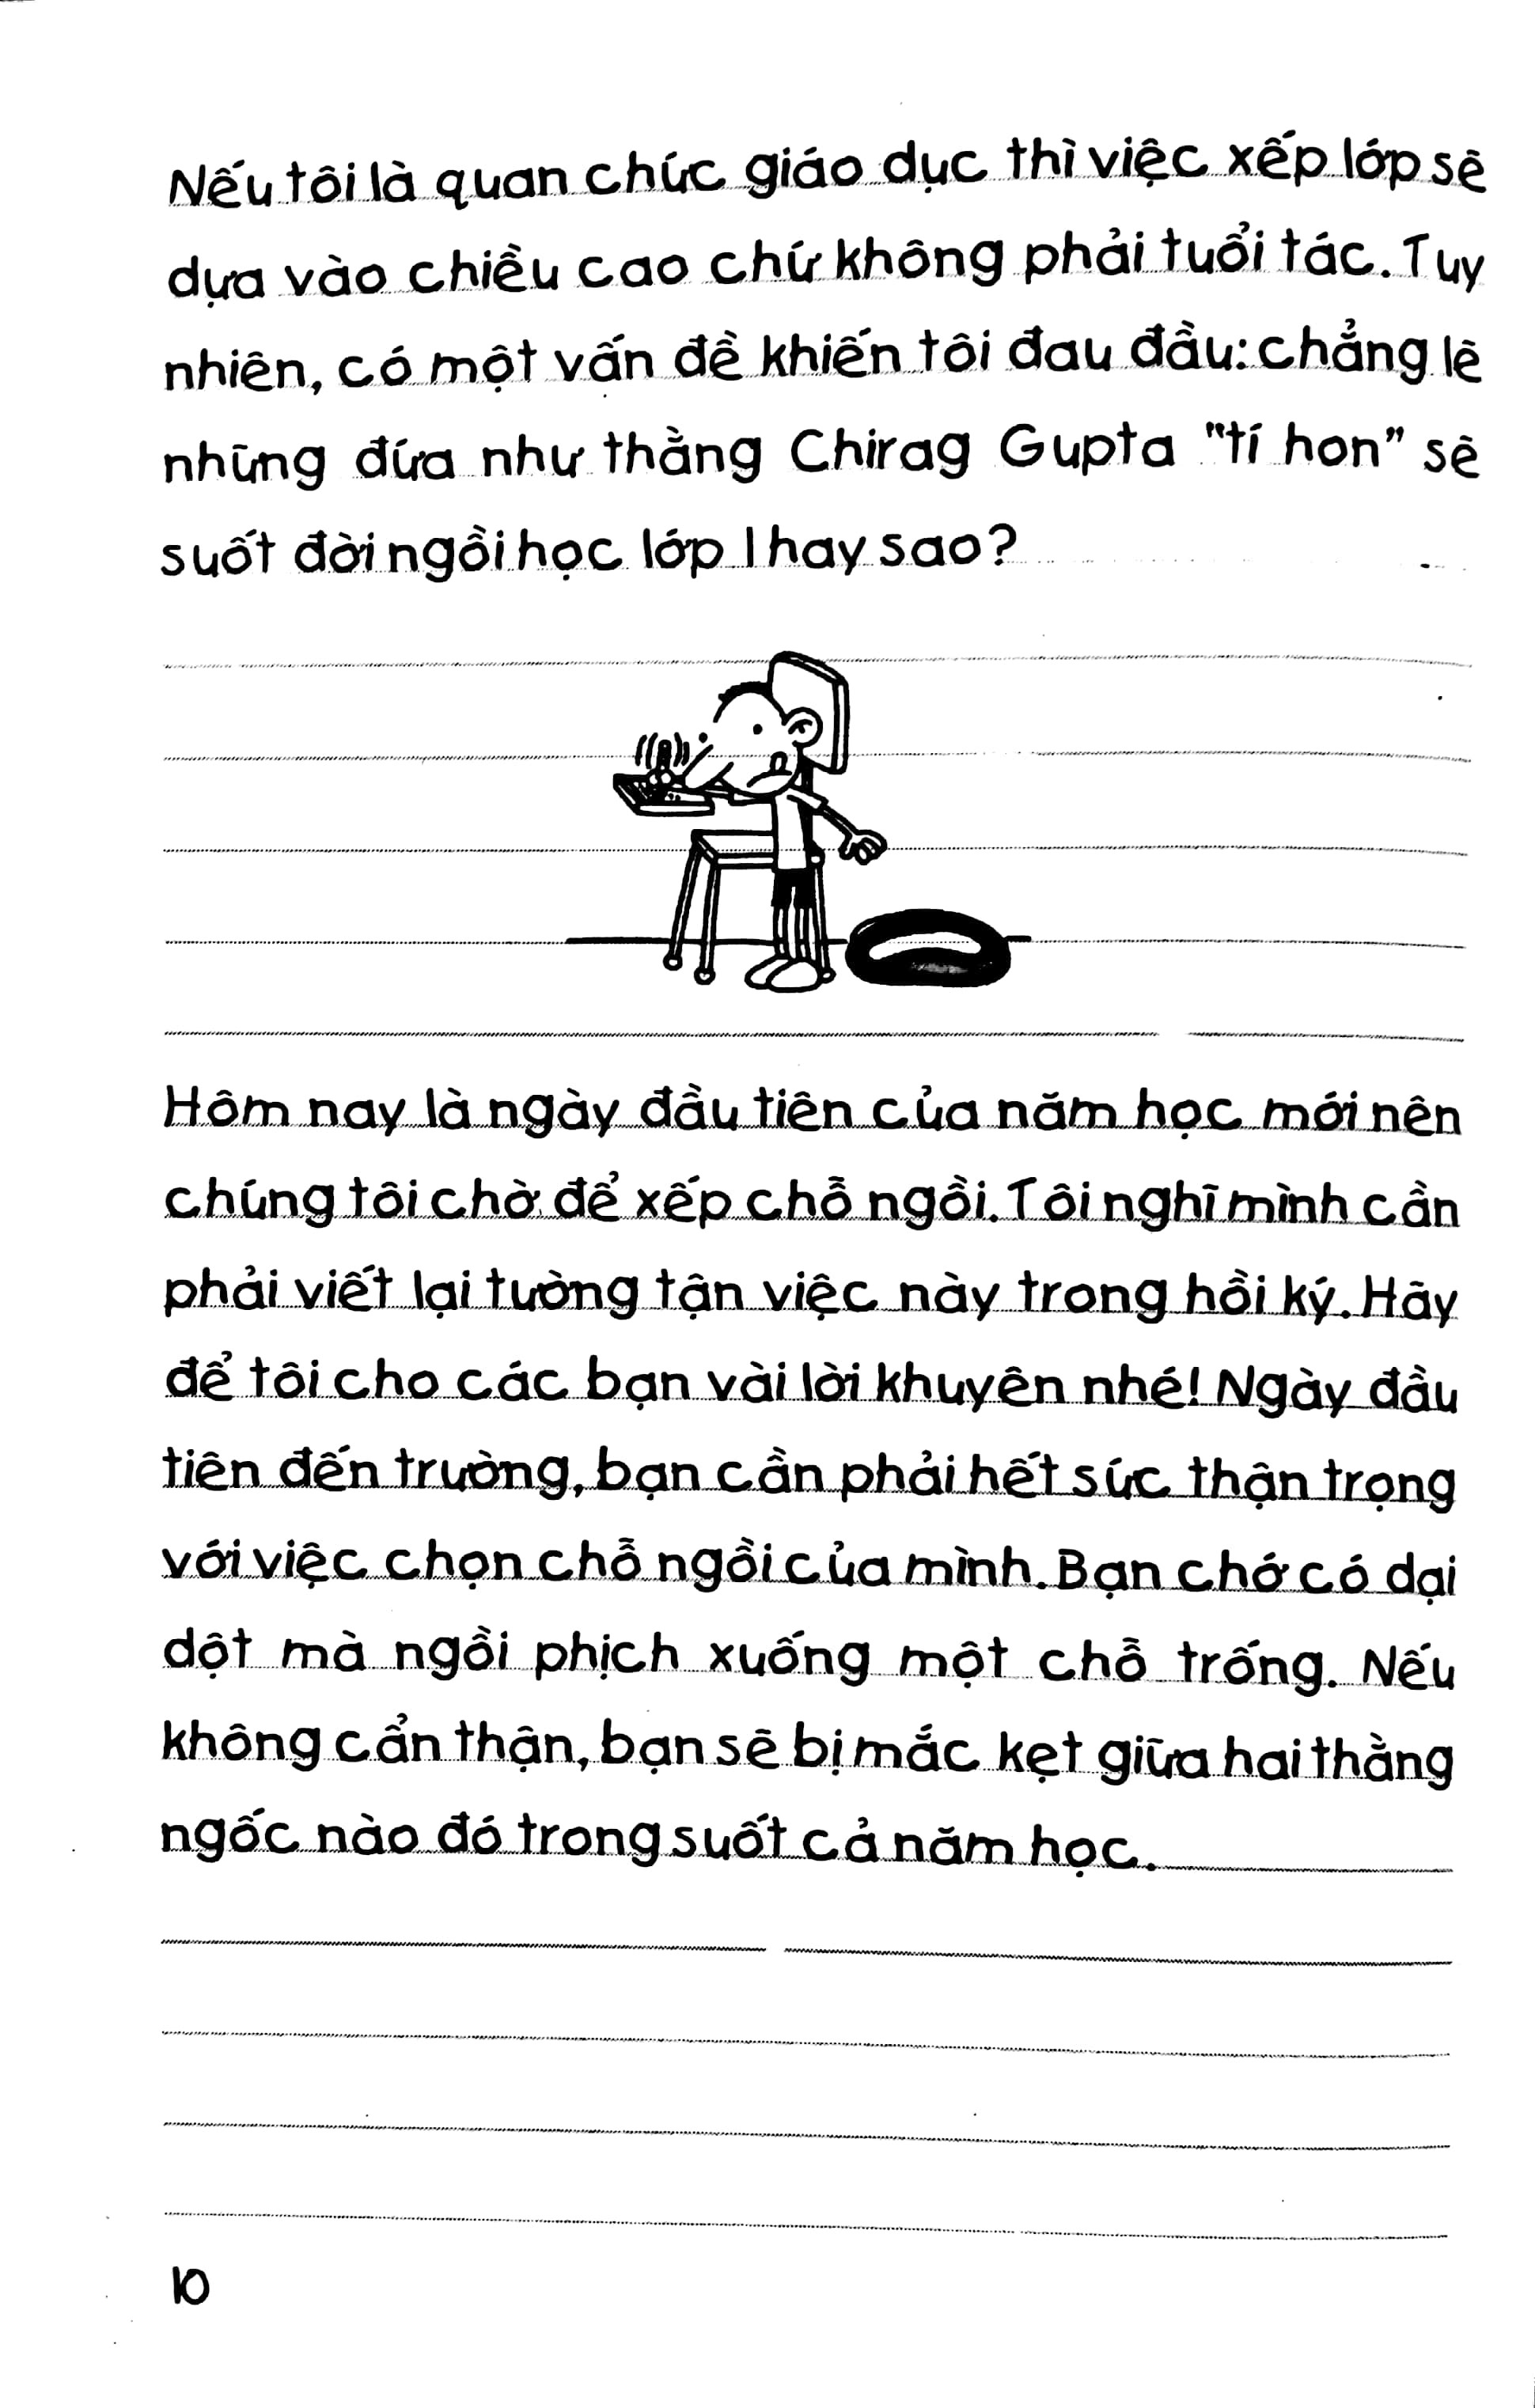 Nếu tôi là quan chức giáo dục thì việc xếp lớp sẽ
dựa vào chiều cao chứ không phải tuổi tác. Tuy
nhiên, có một vấn đề khiến tôi đau đầu: chẳng lẽ
những đứa như thằng Chirag Gupta "tí hon" sẽ
suốt đời ngồi học lớp 1 hay sao?
Hôm nay là ngày đầu tiên của năm học mới nên
chúng tôi chờ để xếp chỗ ngồi. Tôi nghĩ mình cần
phải viết lại tường tận việc này trong hồi ký. Hãy
để tôi cho các bạn vài lời khuyên nhé! Ngày đầu
tiên đến trường, bạn cần phải hết sức thận trọng
với việc chọn chỗ ngồi của mình. Bạn chớ có dại
dột mà ngồi phịch xuống một chỗ trống. Nếu
không cẩn thận, bạn sẽ bị mắc kẹt giữa hai thằng
ngốc nào đó trong suốt cả năm học.
10